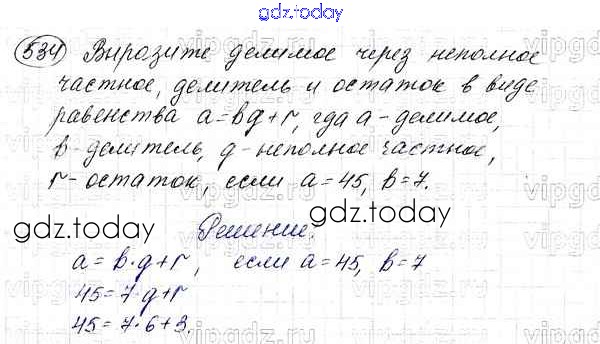 gdz.today
534 Выразите делимое через неполное
частное, делитель и остаток в виде
равенства a=bq+r, где a-делимое,
b-делитель, q-неполное частное,
r-остаток, если a=45, b=7.
gdz.today gdz.today
Решение.
a=b·q+r, если a=45, b=7
45=7·q+r
45=7·6+3.